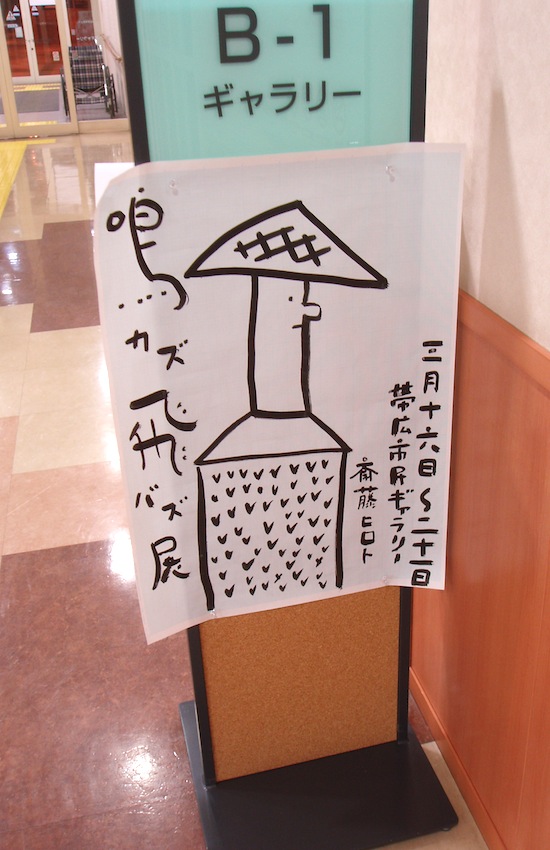 B-1
ギャラリー
三月十六日〜二十一日
帯広市民ギャラリー
斎藤ヒロト
鳴カズ飛バズ展